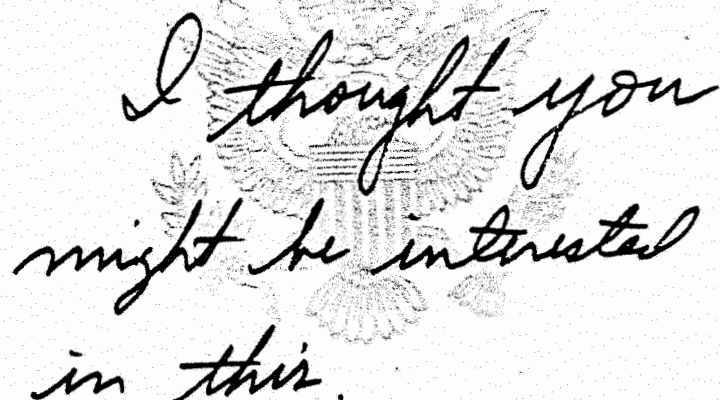 I thought you
might be interested
in this.